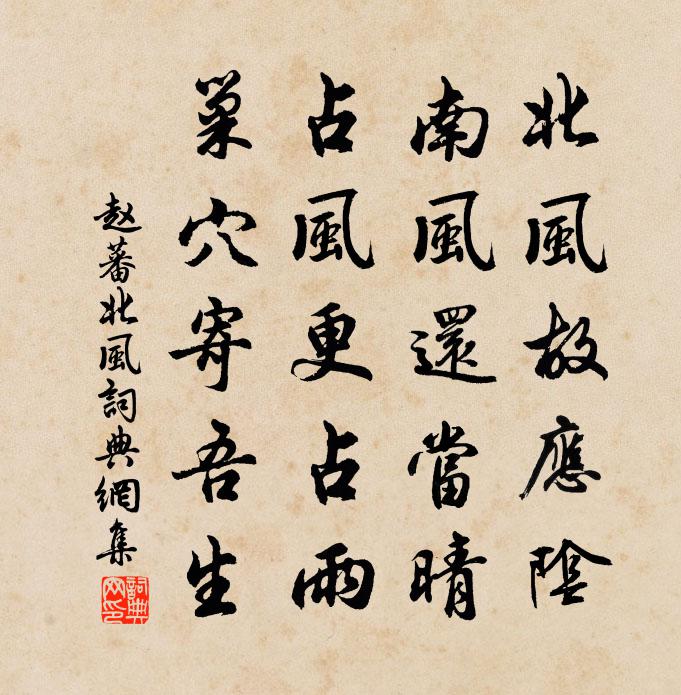 北風故應陰
南風還當晴
占風更占雨
巢穴寄吾生
赵蕃北風詞典網集
詞典